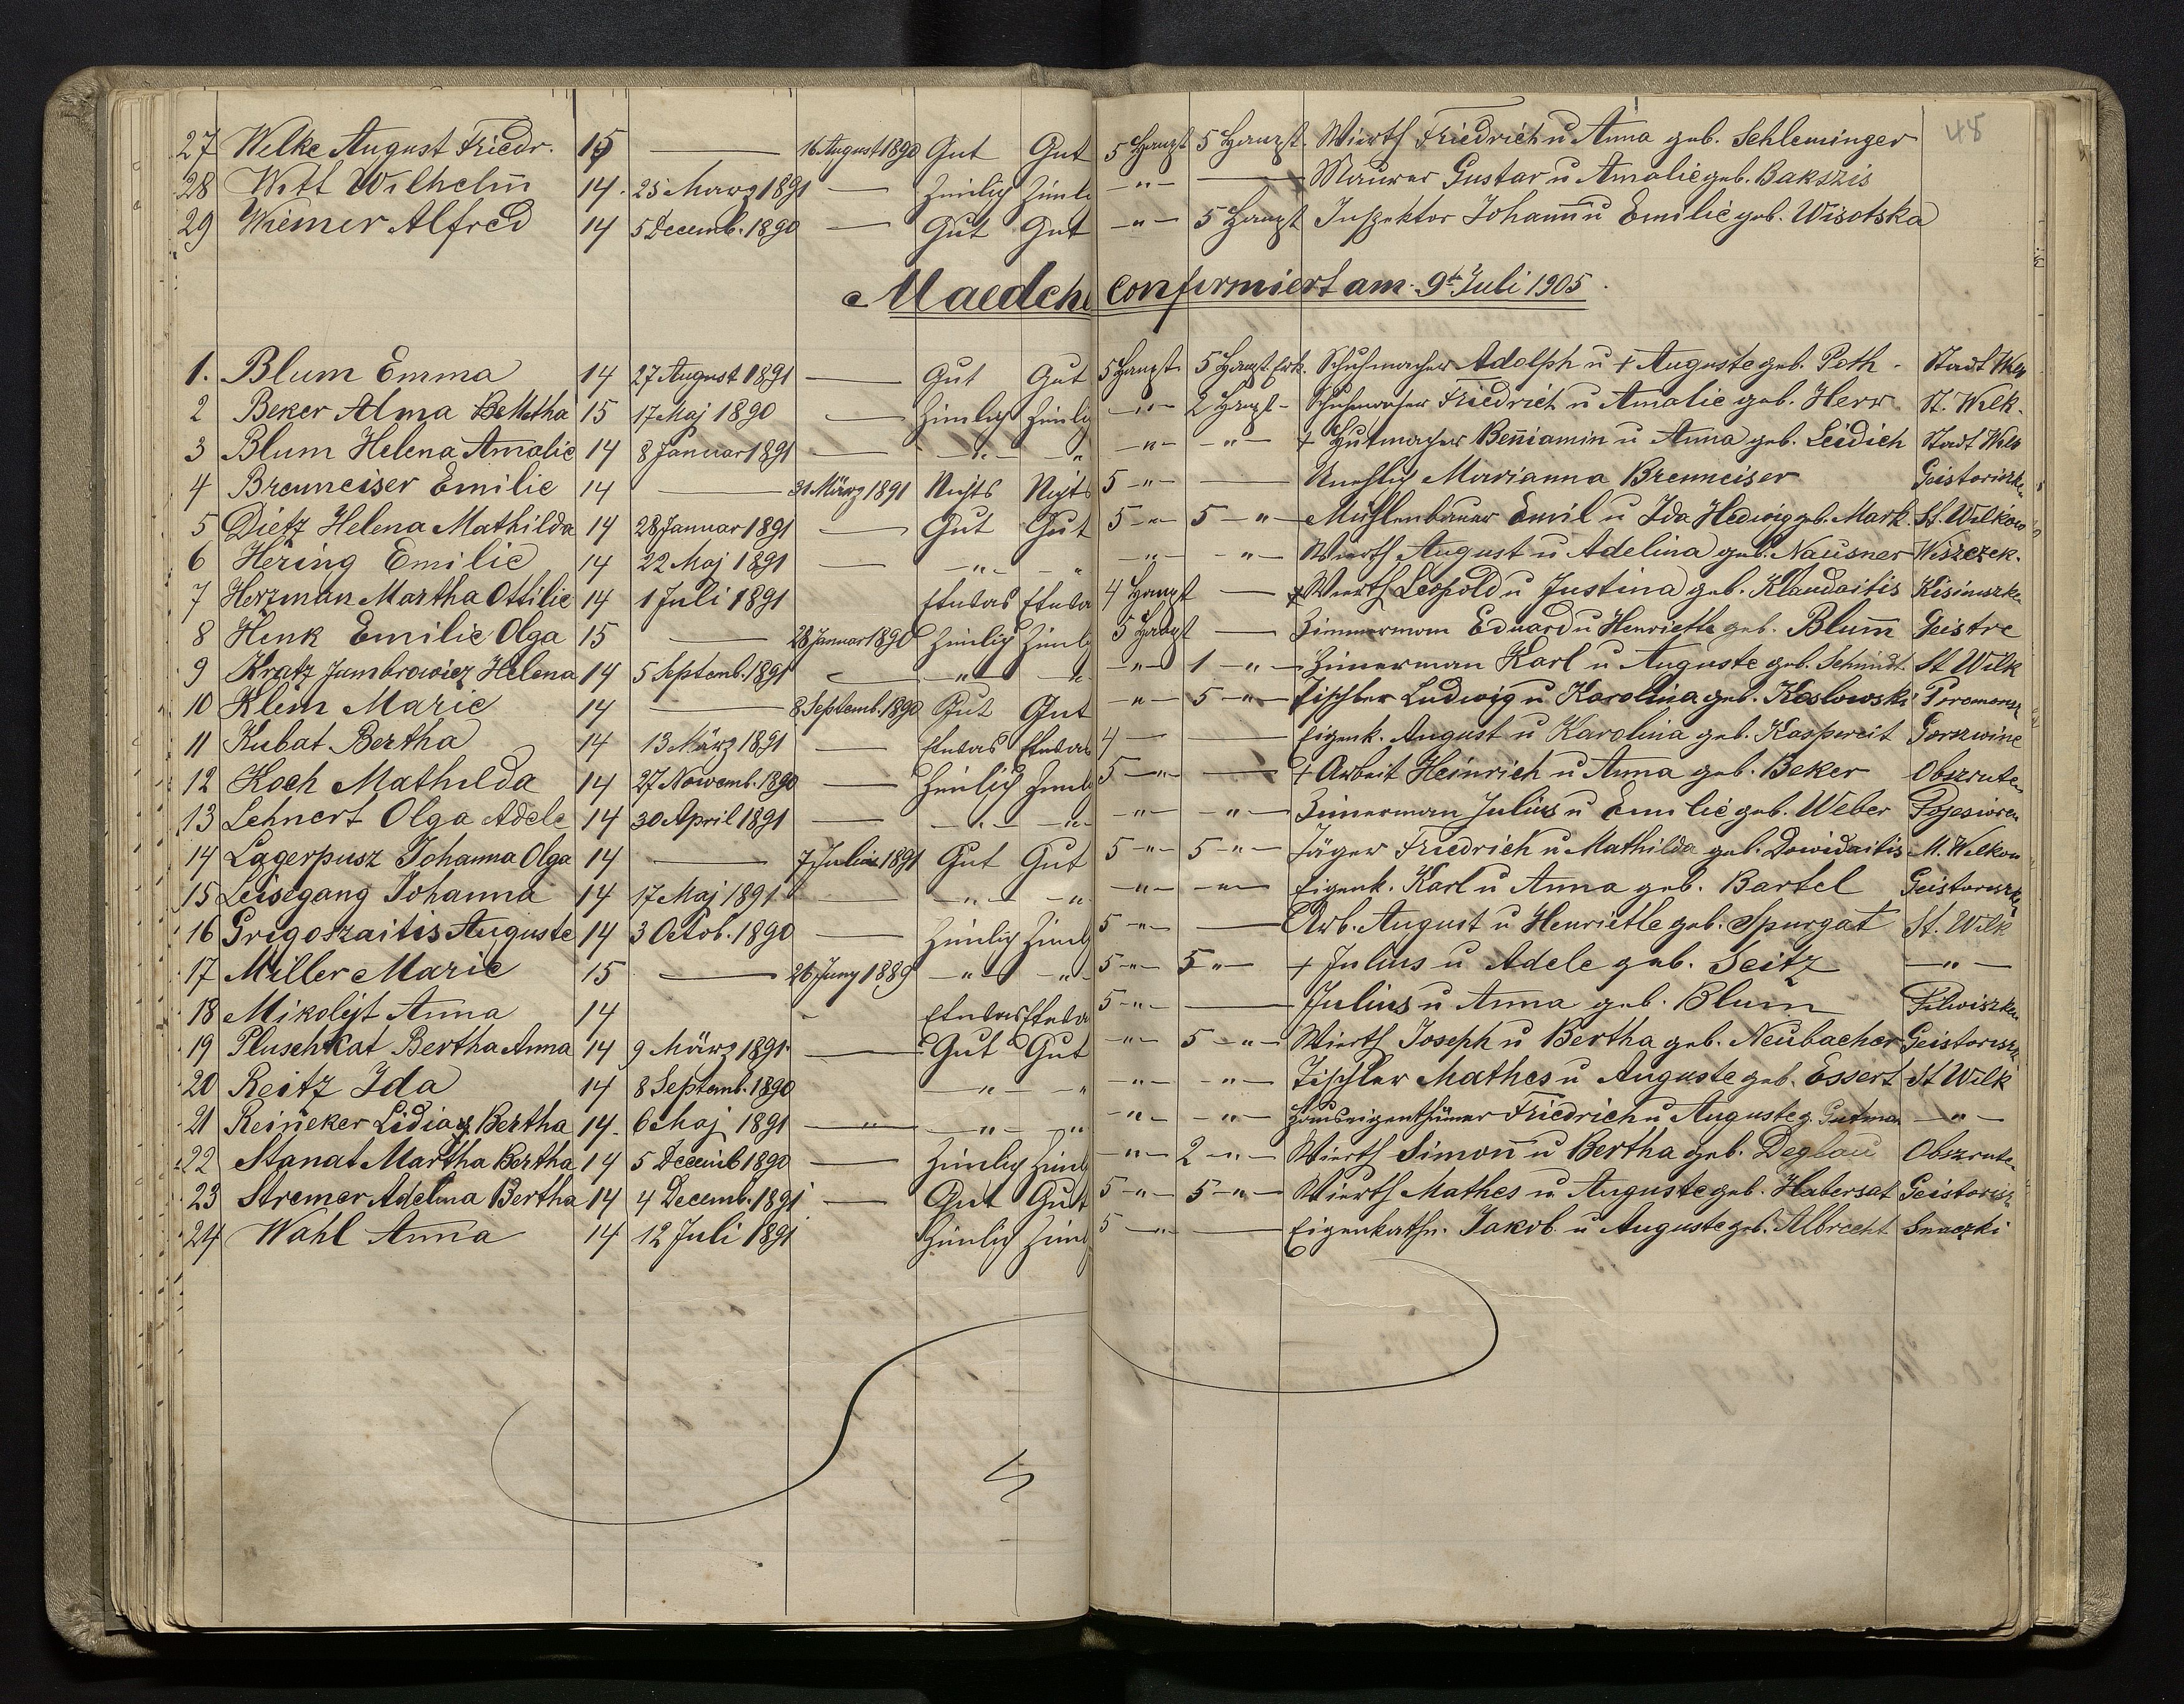 48
27 Welke August Friedr. 15 — 16 August 1890 Gut Gut 5 Haupt 5 Haupt. Wierth Friedrich u Anna geb. Schleminger
28 Witt Wilhelm 14. 25 März 1891 — Zimlig Ziml -"- — Maurer Gustav u Amalie geb. Bakszis
29 Wiemer Alfred 14 5 Decemb. 1890 — Gut Gut -"- 5 Haupt Inspektor Johann u Emilie geb. Wisotska
Maedch Confirmiert am 9t Juli 1905
1. Blum Emma 14 27 August 1891 — Gut Gut 5 Haupt 5 Haupt Erk. Schuhmacher Adolph u + Auguste geb. Poth - Stadt Wilk
2 Beker Alma 15 17 Maj 1890 — Zimlig Zimlig -"- 2 Haupt - Schuhmacher Friedrich u Amalie geb. Herr St. Wilk.
3 Blum Helena Amalie 14 8 Januar 1891 — -"- " -"- -"- + Hutmacher Beniamin u Anna geb. Leidich Stadt Wilk
4 Brenneiser Emilie 14 — 31 März 1891 Nichts Nichts 5 -"- — Unehlig Marianna Brenneiser Geistoriszken
5 Dietz Helena Mathilda 14 28 Januar 1891 — Gut Gut 5 -"- 5 -"- Mühlenbauer Emil u Ida Hedwig geb. Mark. St. Wilkow
6 Hering Emilie 14 22 Maj 1891 — -"- - " -"- -"- Wierth August u Adelina geb. Nausner Wiszczek.
7 Herzman Martha Ottilie 14 1 Juli 1891 Etwas Etwa 4 Haupt — + Wierth Leopold u Justina geb. Klaudaitis Kisiniszken
8 Henk Emilie Olga 15 — 28 Januar 1890 Zimlig Zimlg 5 Haupt — Zimmerman Eduard u Henriette geb. Blum Geistre
9 Kratz Jambrowicz Helena 14 5 Septemb. 1891 — -"- -"- -"- 1 -"- Zimerman Karl u Auguste geb. Schmidt St Wilk
10 Klein Marie 14 — 8 Septemb. 1890 Gut Gut -"- 5 -"- Tischler Ludwig u Karolina geb. Koslowski
11 Kubat Bertha 14 13 März 1891 — Etwas Etwas 4 — — Eigenk. August u Karolina geb. Kaspereit
12 Koch Mathilda 14 27 Novemb. 1890 — Zimlich Zimlg 5 -"- — + Arbeit Heinrich u Anna geb. Beker Obszruten
13 Lehnert Olga Adele 14 30 April 1891 — -"- -"- -"- -"- Zimerman Julius u Emilie geb. Weber Pojesioren
14 Lagerpusz Johanna Olga 14 — 7 Juli 1891 Gut Gut 5 -"- 5 -"- Jäger Friedrich u Mathilda geb. Dowidaitis M. Wilkow
15 Leisegang Johanna 14 17 Maj 1891 — -"- -"- -"- -"- Eigenk. Karl u Anna geb. Bartel Geistoriszken
16 Grigoszaitis Auguste 14 3 Octob. 1890 — Zimlig Zimlg 5 -"- — Arb. August u Henriette geb. Spurgat St. Wilk
17 Miller Marie 15 — 26 Juny 1889 -"- -"- 5 -"- 5 "- + Julius u Adele geb. Seitz -"-
18 Mikolejt Anna 14 - Etwas Etwa 5 -"- — Julius u Anna geb. Blum Pilwiszken
19 Pluschkat Bertha Anna 14 9 März 1891. — Gut Gut -"- 5 -"- Wierth Joseph u Bertha geb. Neubacher Geistorisz
20 Reitz Ida 14 8 Septemb. 1890 -"- " -"- -"- Tischler Mathes u Auguste geb. Essert St Wilk
21 Reineker Lidia Bertha 14. 6 Maj 1891 -"- -"- -"- -"- -"- Hauseigenthümer Friedrich u Auguste g. Gutman -"-
22 Stanat Martha Bertha 14 5 Decemb 1890 — Zimlig Zimlg -"- 2 -"- Wierth Simon u Bertha geb. Deglau Obszruten
23 Stremer Adelina Bertha 14 4 Decemb. 1891 — Gut Gut 5 -"- 5 -"- Wierth Mathes u Auguste geb. Habersat Geistorisz
24 Wahl Anna 14 12 Juli 1891 Zimlig Zimlg 5 -"- — Eigenkathn. Jakob u Auguste geb. Albrecht Snaczki